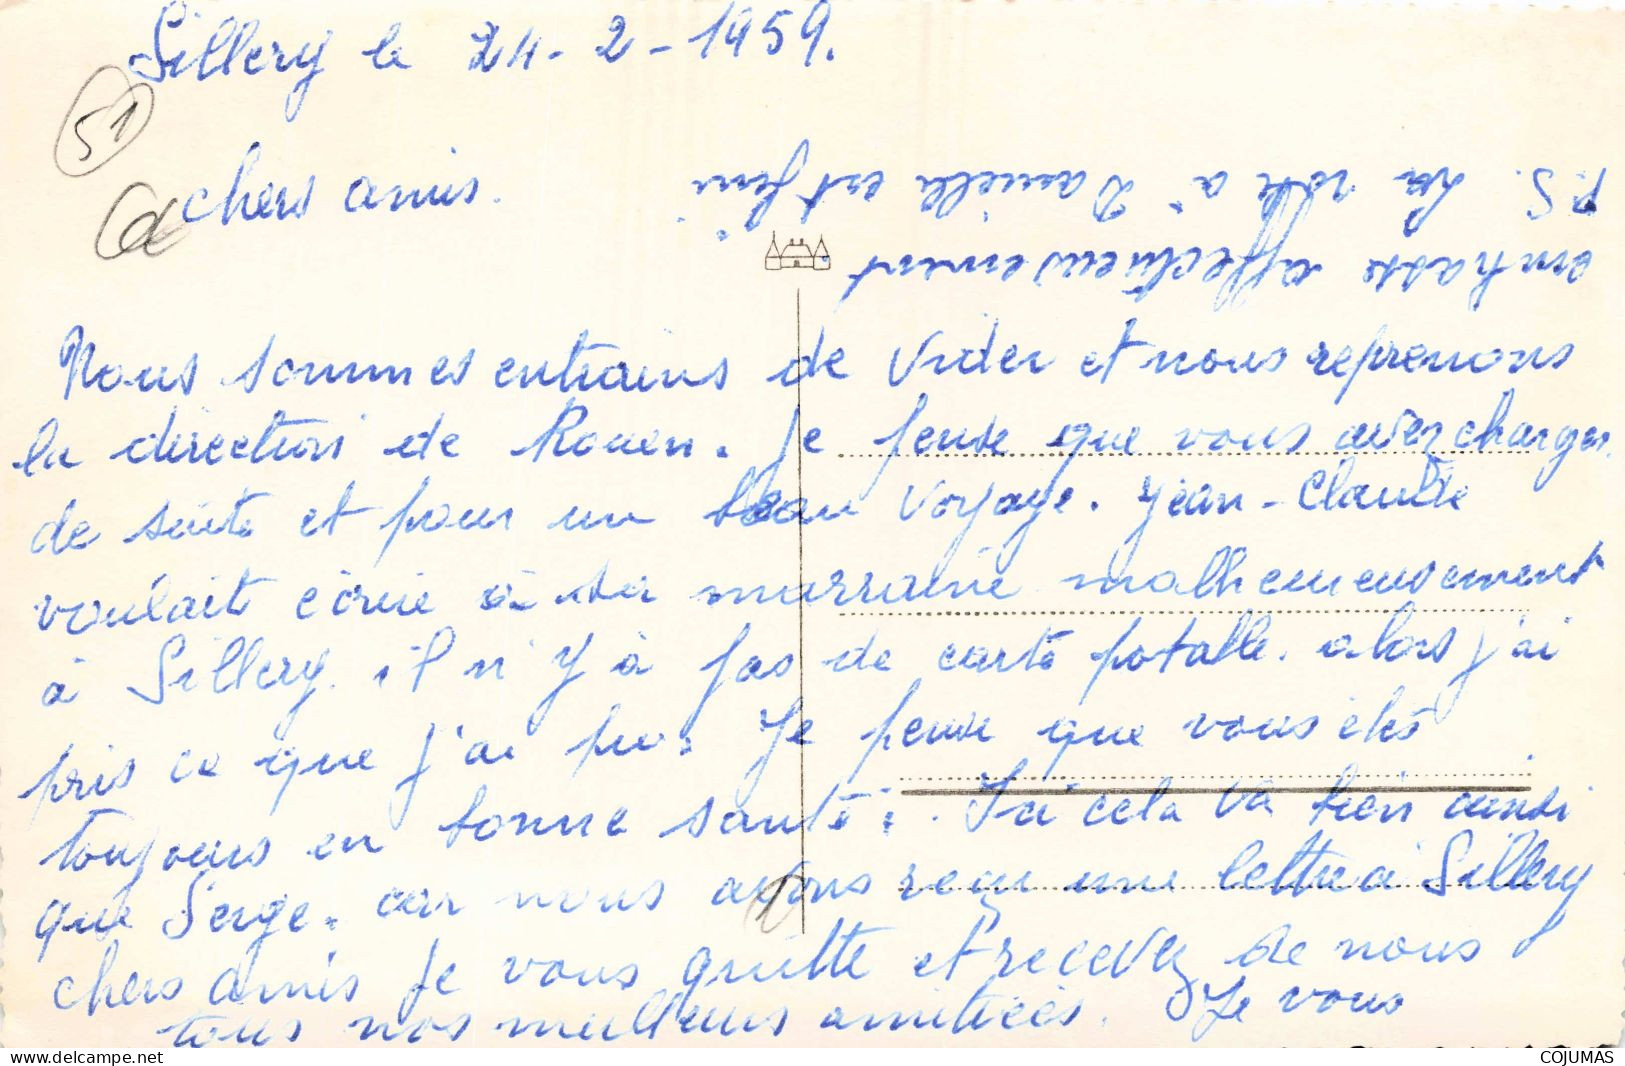 Sillery le 24-2-1959.
51
chers amis.
Nous sommes entrains de vider et nous reprenons
la direction de Rouen. Je pense que vous avez charger
de suite et pour un beau voyage. Jean-Claude
voulait écrire à sa marraine malheureusement
à Sillery il n'y à pas de carte potalle. alors j'ai
pris ce que j'ai pu. Je pense que vous êtes
toujours en bonne santé. Ici cela va bien ainsi
que Serge. car nous avons reçu une lettre à Sillery
chers amis je vous quitte et recevez de nous
tous nos meilleurs amitiées. Je vous
embrasse affectueusement
P.S. La robe a Daniella est fini
COJUMAS
delcampe.net